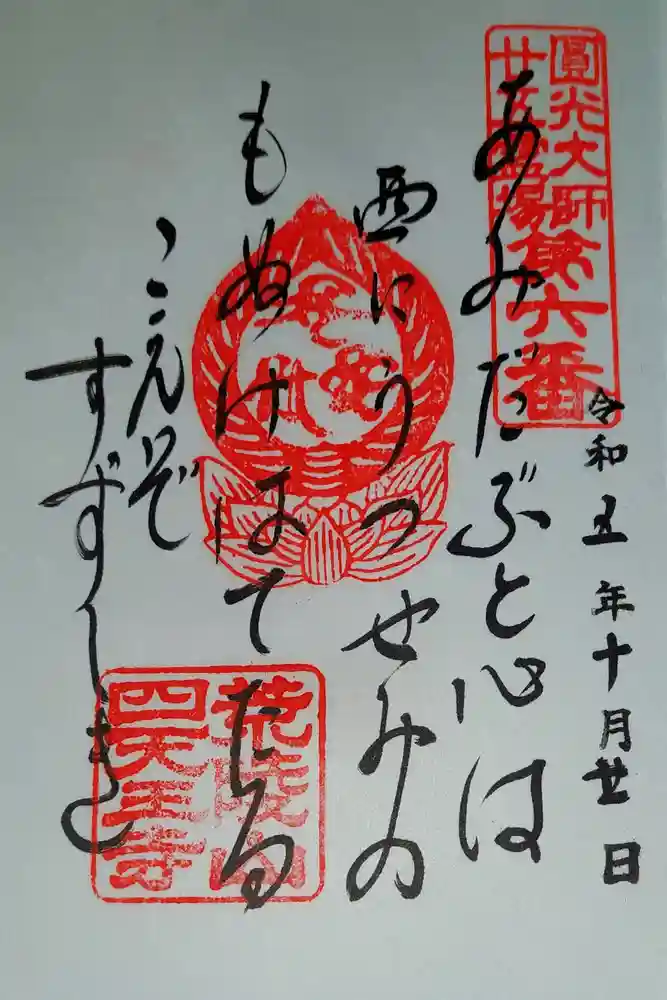 圓光大師第六番
廿五霊場
令和五年十月廿日
あみだぶと心は
西にうつせみの
もぬけはてたる
こゑぞ
すずしき
荒陵山
四天王寺